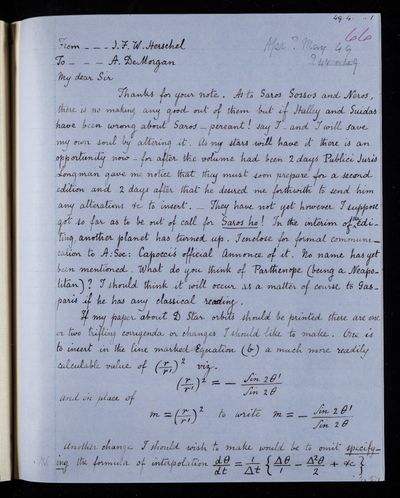 49.4. -1
66
From - - - J.F.W. Herschel
Apr? May 49
To - - - A. DeMorgan
My dear Sir
Thanks for your note. As to Saros Sossos and Neros,
there is no making any good out of them but if Halley and Suidas
have been wrong about Saros – pereant! say I – and I will save
my own soul by altering it. As my stars will have it there is an
opportunity now – for after the volume had been 2 days Publici Juris
Longman gave me notice that they must soon prepare for a second
edition and 2 days after that he desired me forthwith to send him
any alterations &c to insert. – They have not yet however I suppose
got so far as to be out of call for Saros ho! In the interim of the edi-
ting another planet has turned up. I enclose for formal communi-
cation to A. Soc: Capocci's official Annonce of it. No name has yet
been mentioned. What do you think of Parthenope (being a Neapo-
litan)? I should think it will occur as a matter of course to Gas-
paris if he has any classical reading.
If my paper about D Star orbits should be printed there are one
or two trifling corrigenda or changes I should like to make. One is
to insert in the line marked Equation (b) a much more readily
calculable value of (r/r')² viz.
(r/r')² = – Sin 2θ'/Sin 2θ
and in place of
m = (r/r')² to write m = – Sin 2θ'/Sin 2θ
Another change I should wish to make would be to omit specify-
ing the formula of interpolation dθ/dt = 1/Δt {Δθ/1 – Δ²θ/2 + &c}